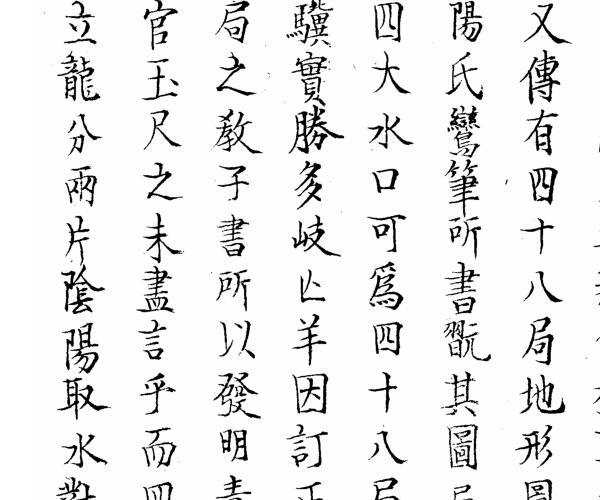 又傳有四十八局地形圖
陽氏鸞筆所書翫其圖
四大水口可爲四十八局
驥實勝多岐亾羊因訂正
局之敎子書所以發明靑
官玉尺之未盡言乎而四
立龍分兩片陰陽取水對